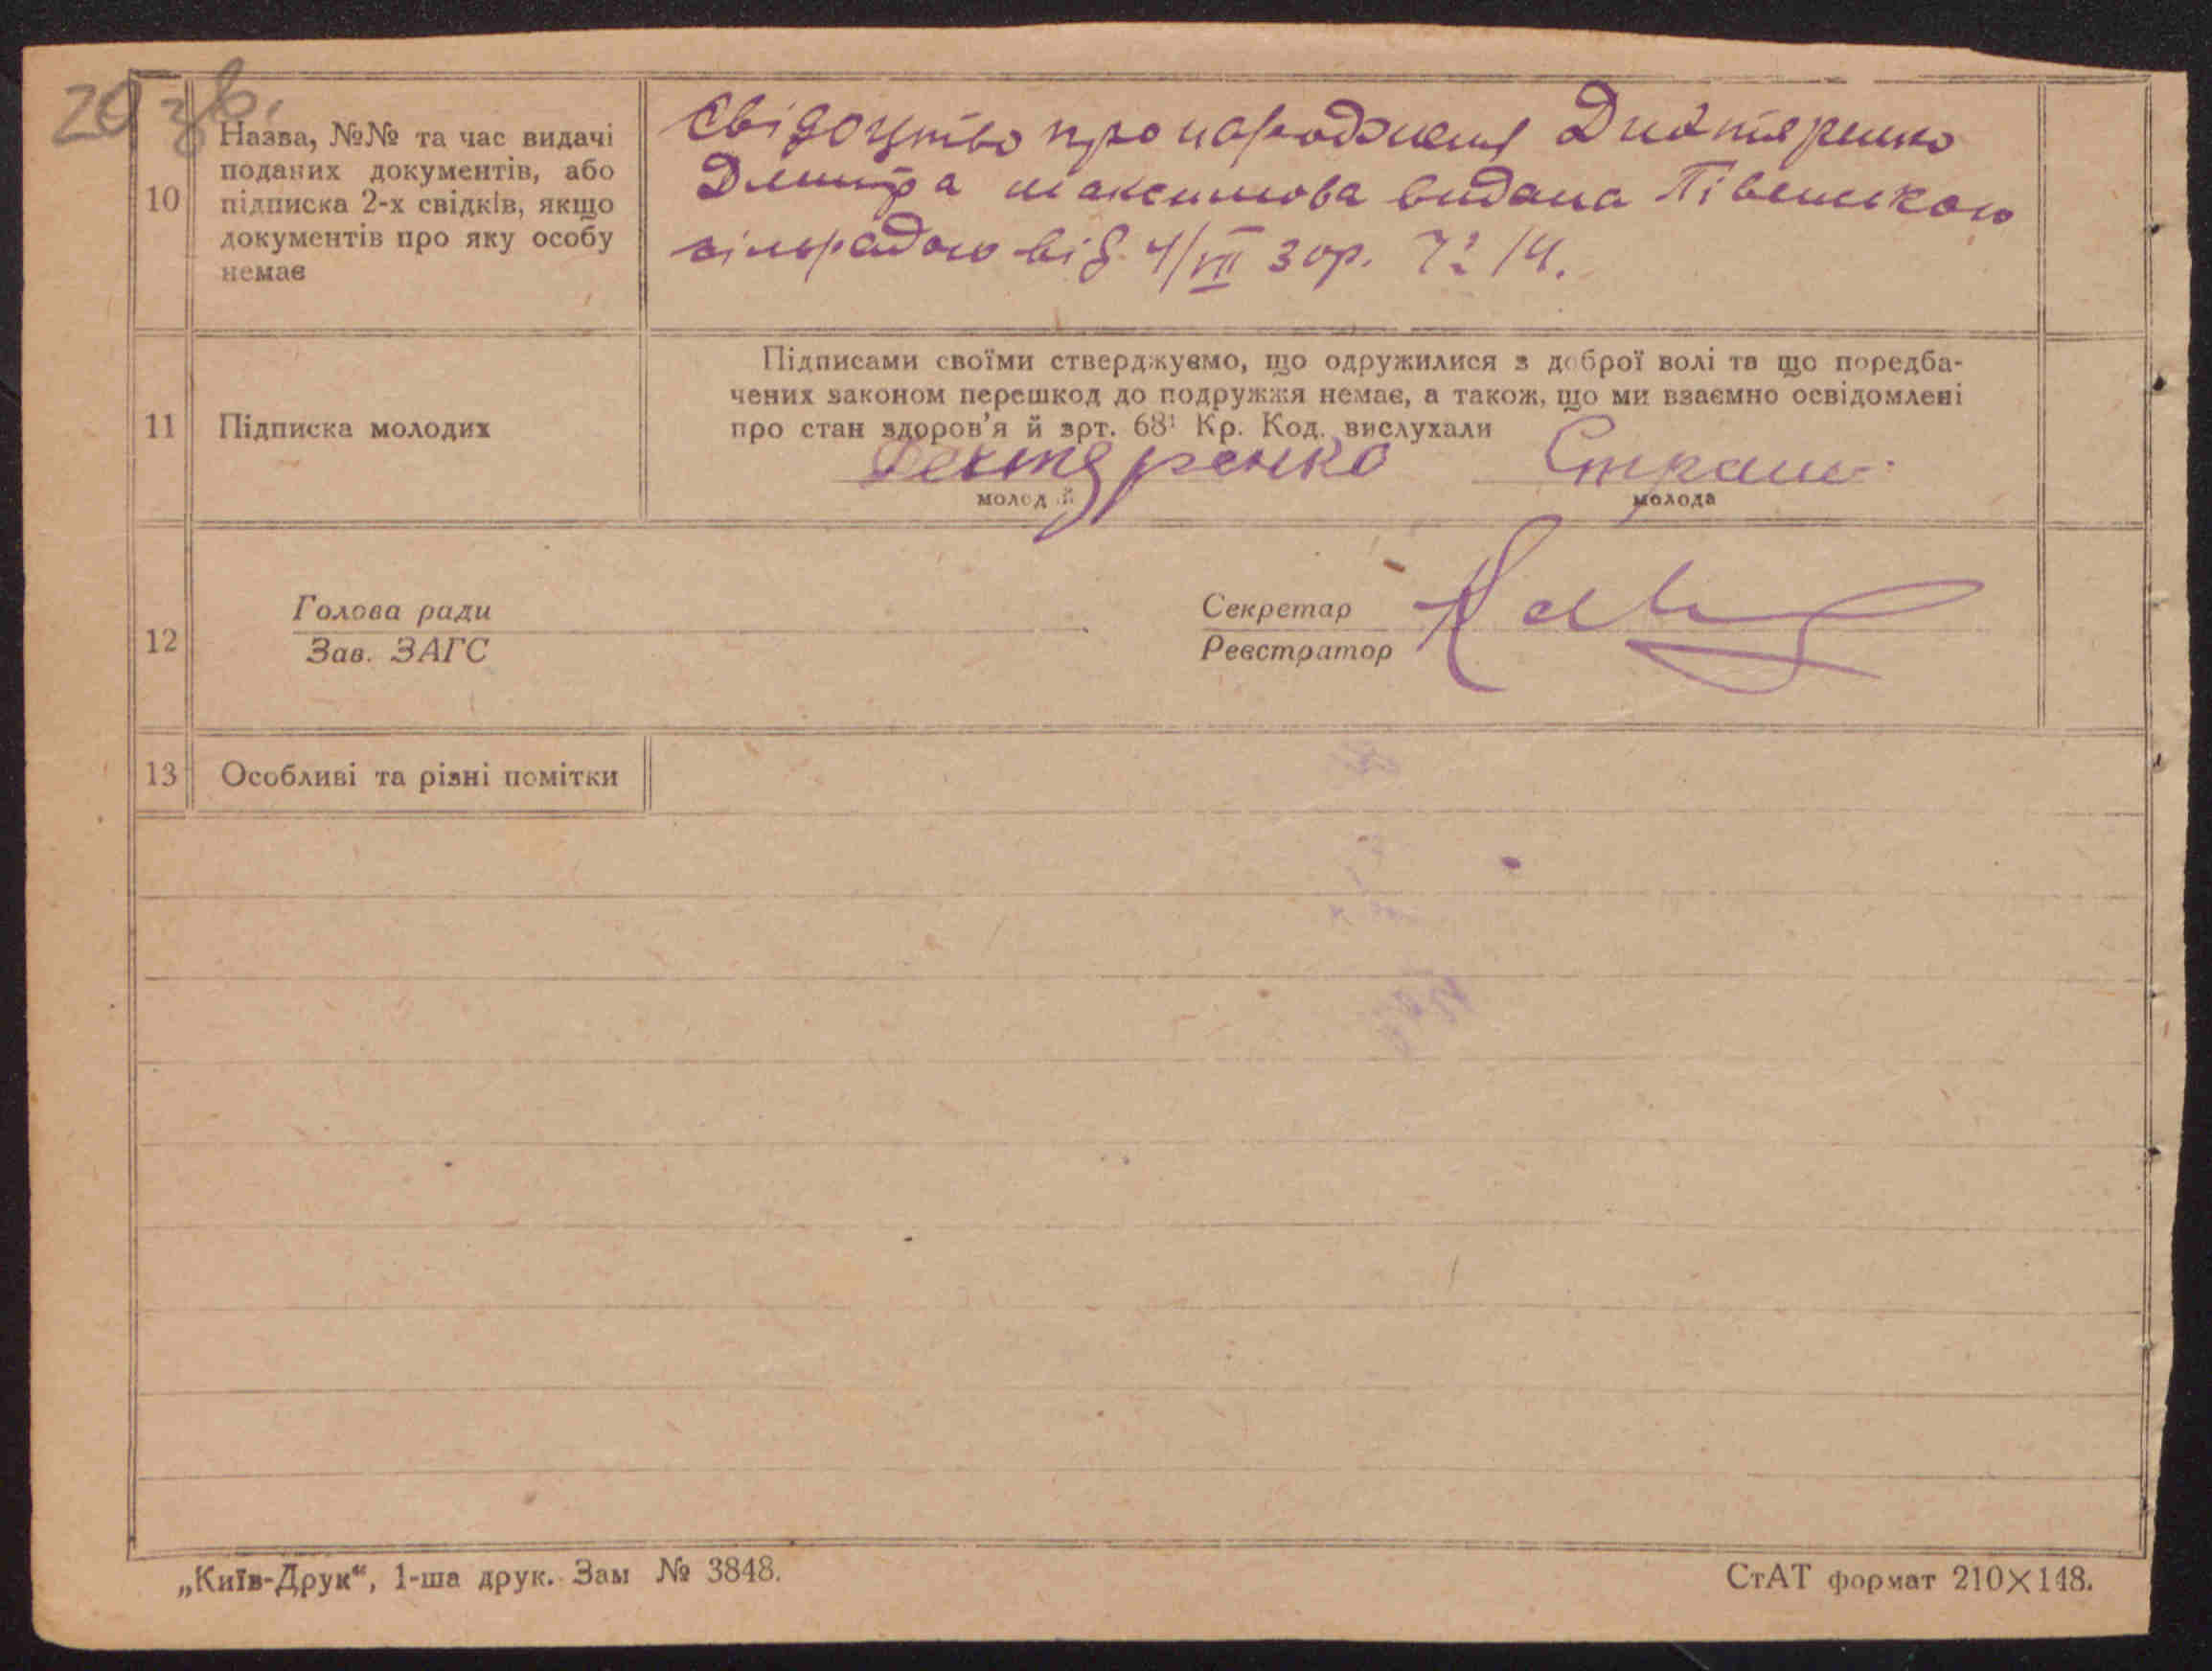 20 зв.
10
Назва, №№ та час видачі
поданих документів, або
підписка 2-х свідків, якщо
документів про яку особу
немає
Свідоцтво про народження
Дмитра максимова видана
сільрадою від 4/VII 30р. № 14.
11
Підписка молодих
Підписами своїми стверджуємо, що одружилися з доброї волі та що передба-
чених законом перешкод до подружжя немає, а також, що ми взаємно освідомлені
про стан здоров'я й арт. 68¹ Кр. Код. вислухали
Дехтяренко
молодий
молода
12
Голова ради
Зав. ЗАГС
Секретар
Реєстратор
13
Особливі та різні помітки
„Київ-Друк“, 1-ша друк. Зам № 3848.
СтАТ формат 210×148.